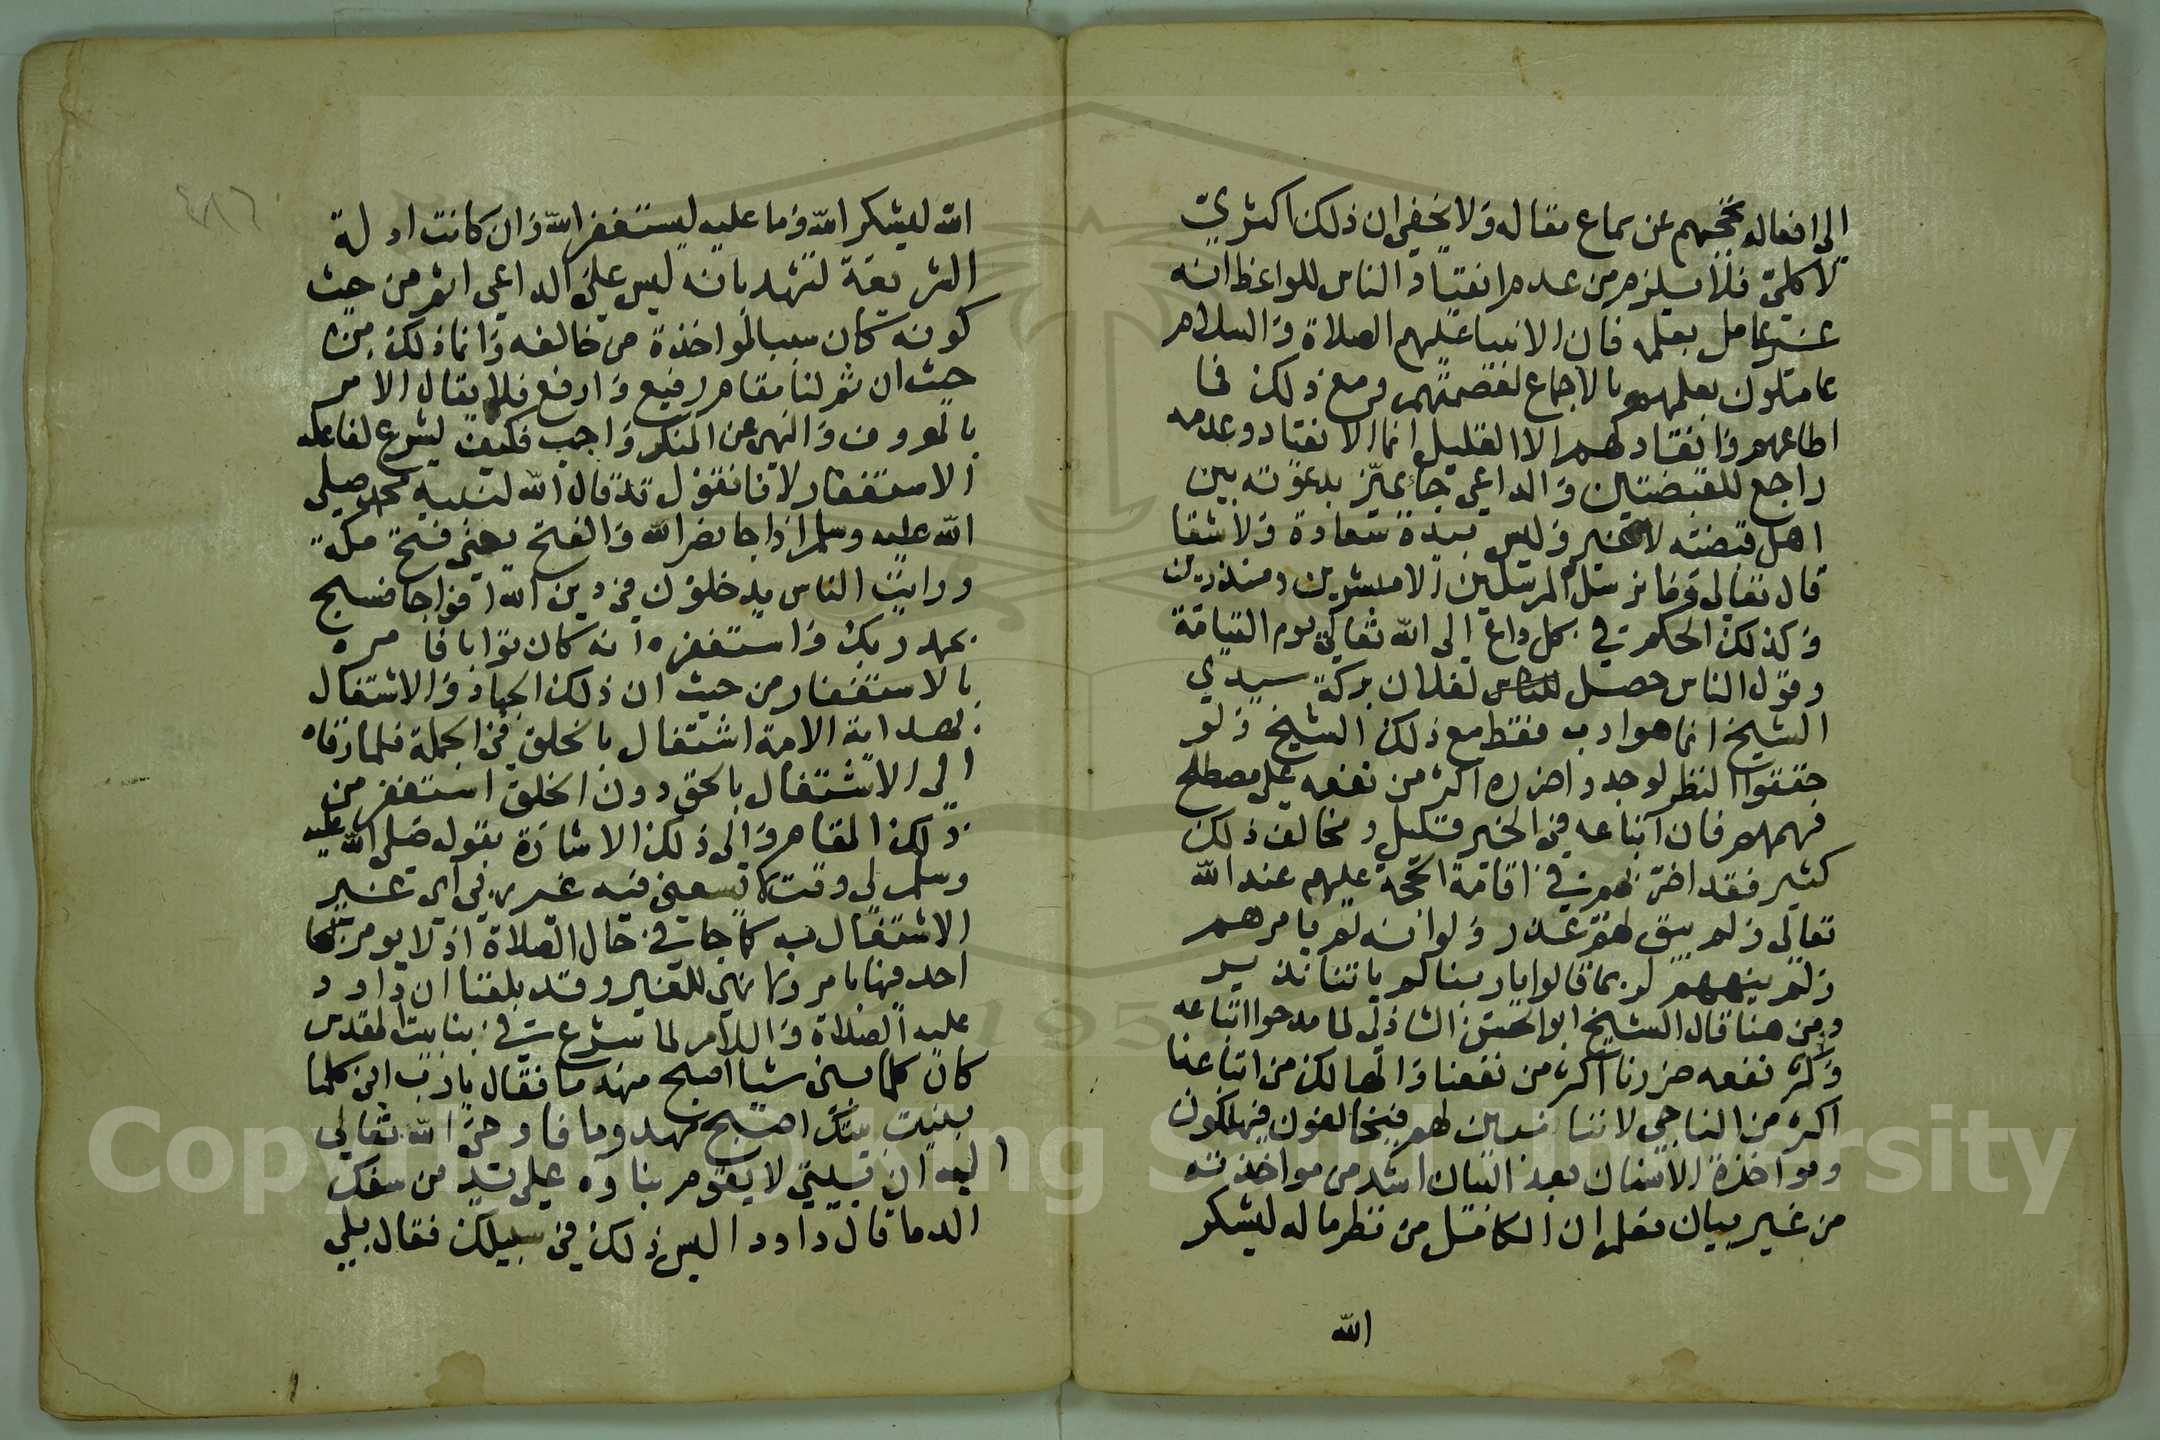 الى افعاله تحجبهم عن سماع مقاله ولا يخفى ان ذلك اكثري
لا كلي فلا يلزم من عدم انقياد الناس للواعظ انه
غير عامل بعلمه فان الانبيا عليهم الصلاة والسلام
عاملون بعلمهم بالاجماع لعصمتهم ومع ذلك فما
اطاعهم وانقاد لهم الا القليل انما الانقياد وعدمه
راجع للقبضتين والداعي جا يميز بدعوته بين
اهل قبضته لا غير وليس بيده سعادة ولا شقا
قال تعالى وما نرسل المرسلين الا مبشرين ومنذرين
وكذلك الحكم في كل داع الى الله تعالى يوم القيامة
وقول الناس حصل لفلان بركة سيدي
الشيخ انما هو ادب فقط مع ذلك الشيخ ولو
حققوا النظر لوجدوا ضرره اكثر من نفعه على مصطلح
فهمهم فان اتباعه في الخير قليل ومخالف ذلك
كثير فقد اضر بهم في اقامة الحجة عليهم عند الله
تعالى ولم يبق لهم عذر ولو انه لم يامرهم
ولم ينههم لربما قالوا يا ربنا لم ياتنا نذير
ومن هنا قال الشيخ ابو الحسن الشاذلي لما مدحوا اتباعه
وكثر نفعه ضررنا اكثر من نفعنا والهالك من اتباعنا
اكثر من الناجي لاننا نبين لهم فيخالفون فيهلكون
ومواخذة الانسان بعد البيان اشد من مواخذته
من غير بيان فعلم ان الكامل من نظر ما له ليشكر
الله
الله ليشكر الله وما عليه ليستغفر الله وان كانت ادلة
الشريعة تشهد بانه ليس على الداعي اثم من حيث
كونه كان سببا لمواخذة من خالفه وانما ذلك من
حيث ان ثم لنا مقام رفيع وارفع فلا يقال الامر
بالمعروف والنهي عن المنكر واجب فكيف يشرع لفاعله
الاستغفار لانا نقول قد قال الله لنبيه محمد صلى
الله عليه وسلم اذا جا نصر الله والفتح يعني فتح مكة
ورايت الناس يدخلون في دين الله افواجا فسبح
بحمد ربك واستغفره انه كان توابا فامره
بالاستغفار من حيث ان ذلك الجهاد والاشتغال
بهداية الامة اشتغال بالخلق في الجملة فلما رقاه
الى الاشتغال بالحق دون الخلق استغفر من
ذلك المقام والى ذلك الاشارة بقوله صلى الله عليه
وسلم لي وقت لا يسعني فيه غير ربي اي غير
الاشتغال به كما جا في حال الصلاة اذ لا يومر
احد فيها بامر ولا نهي للغير وقد بلغنا ان داود
عليه الصلاة والسلام لما شرع في بنا بيت المقدس
كان كلما بنى شيا اصبح مهدما فقال يا رب اني كلما
بنيت بيتك اصبح مهدوما فاوحى الله تعالى
اليه ان بيتي لا يقوم بناوه على يد من سفك
الدما قال داود اليس ذلك في سبيلك فقال بلى